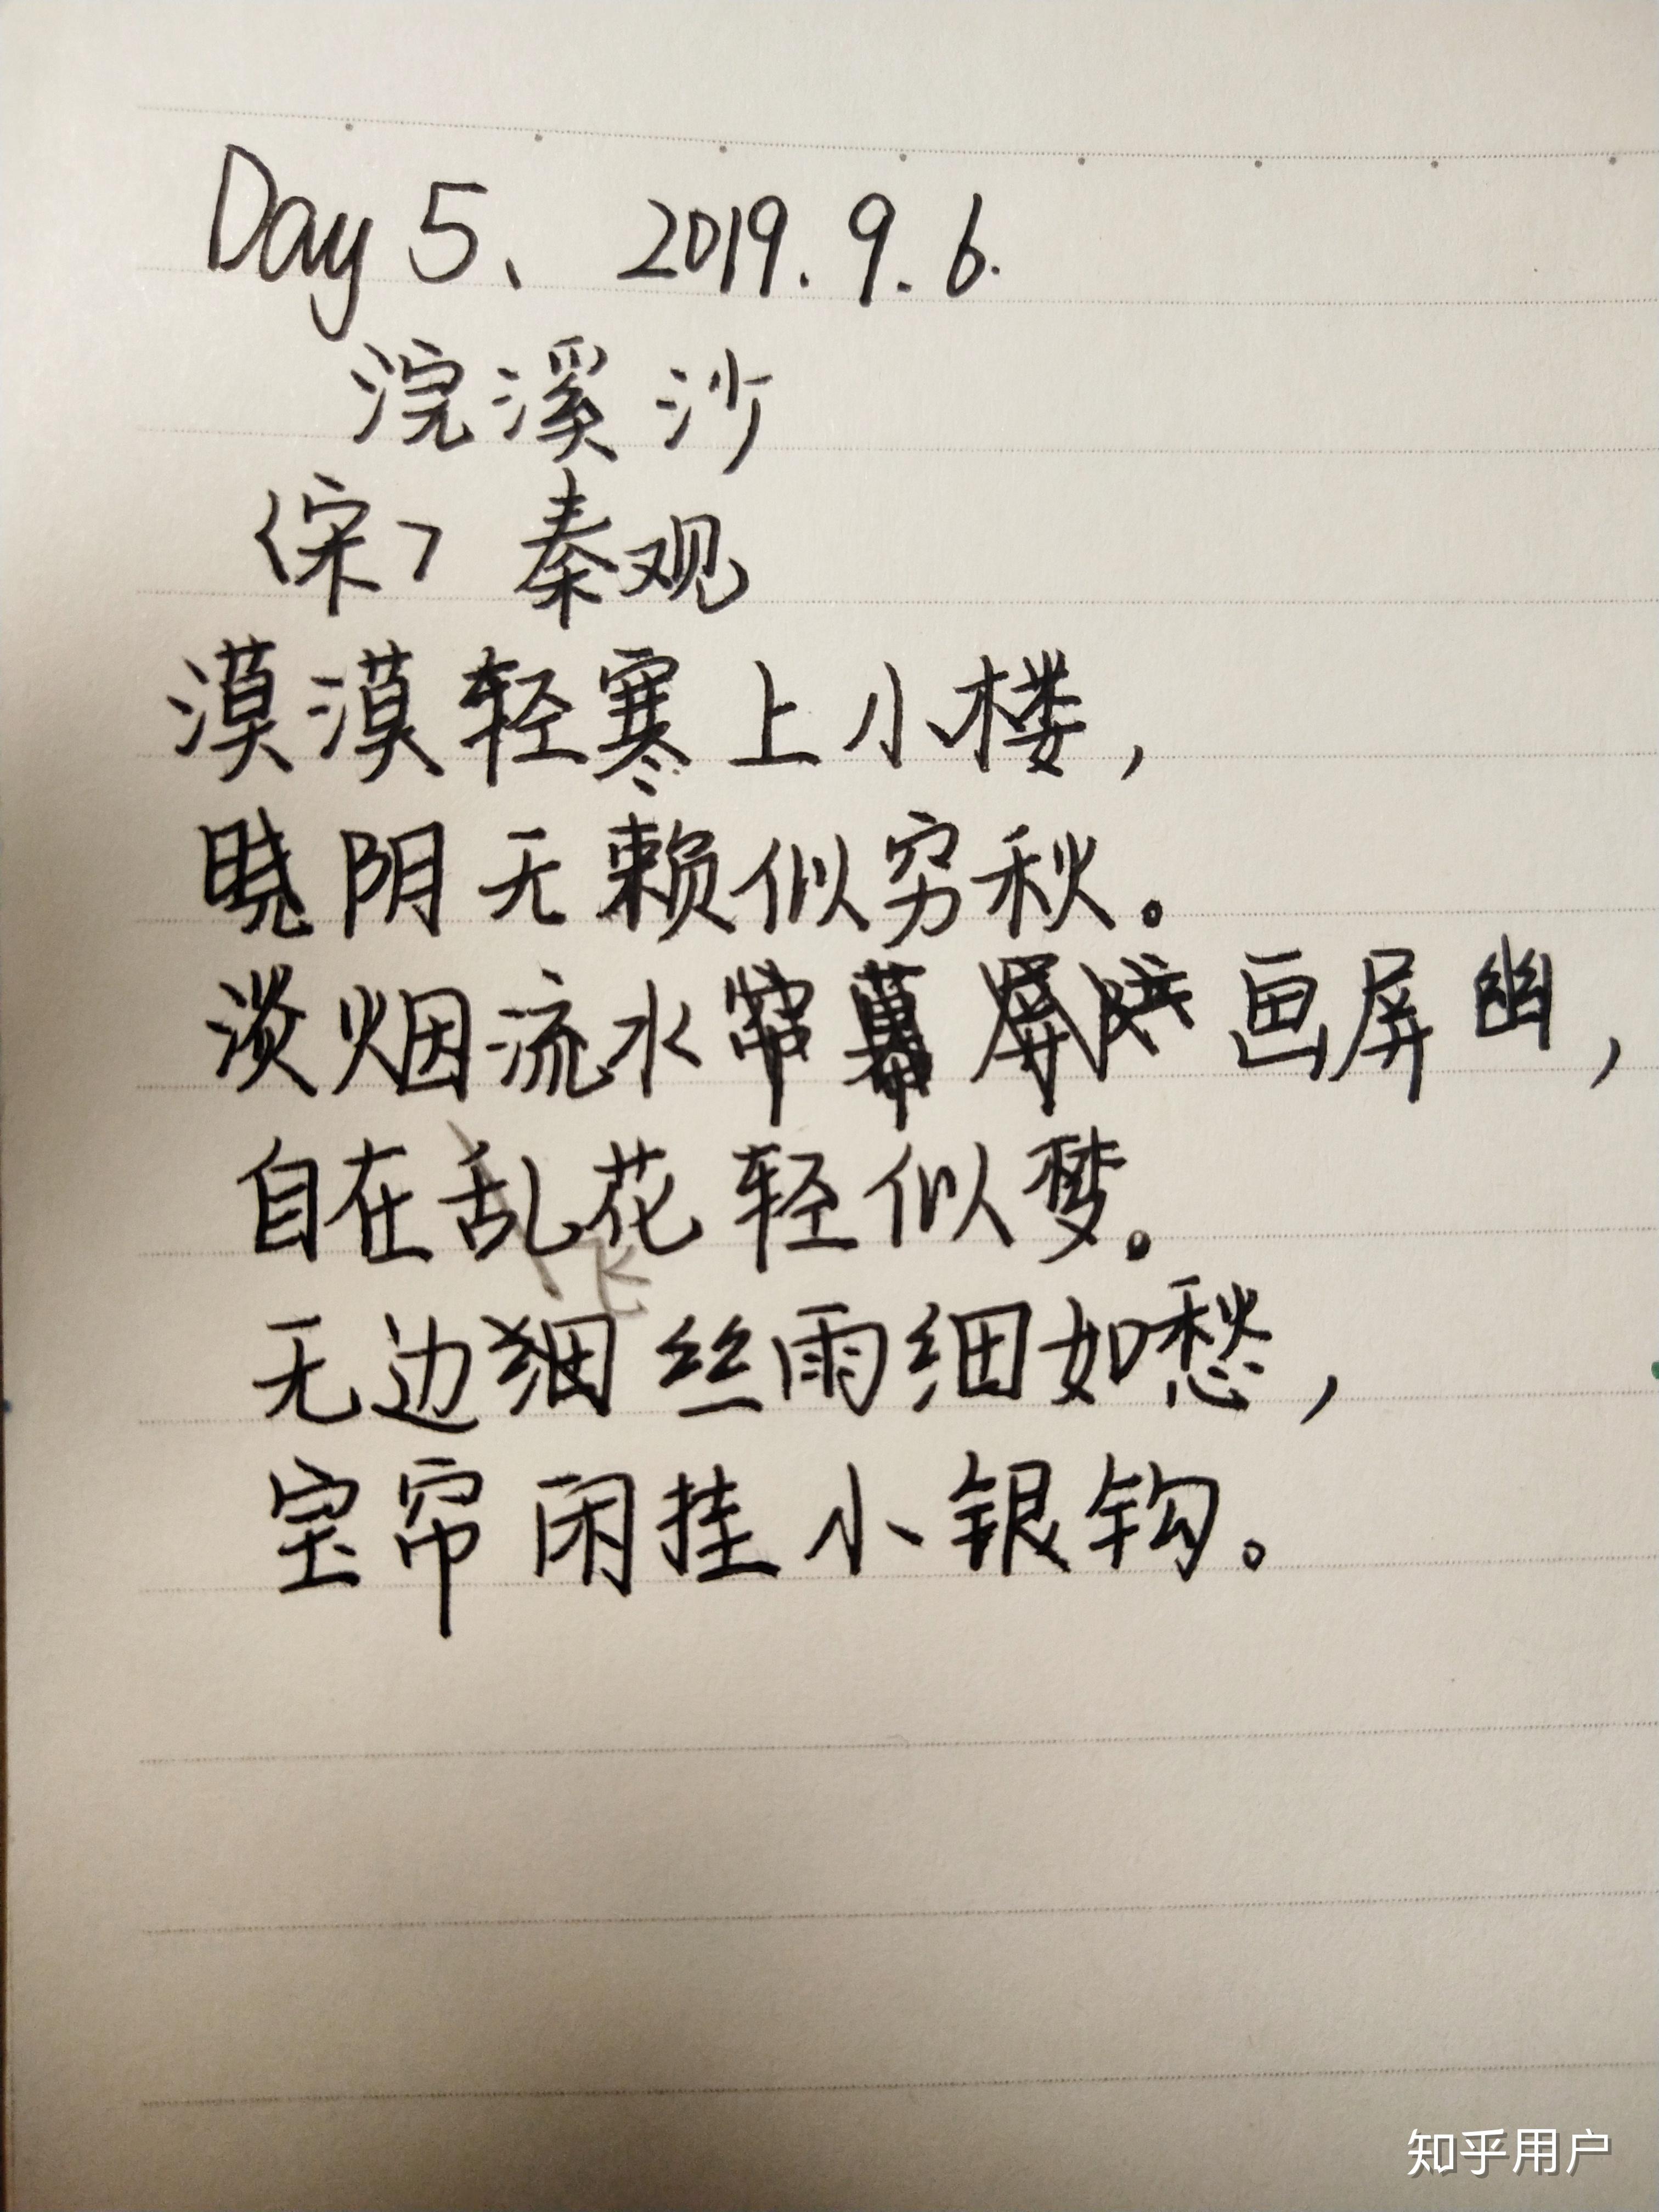 Day 5、 2019.9.6.
浣溪沙
〈宋〉 秦观
漠漠轻寒上小楼，
晓阴无赖似穷秋。
淡烟流水画屏幽，
自在乱花轻似梦。
飞
无边丝雨细如愁，
宝帘闲挂小银钩。
知乎用户